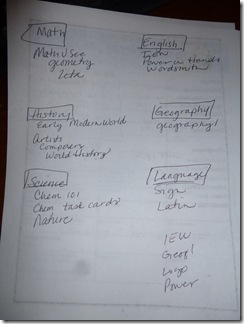 Math
Math U See
geometry
Zeta
English
Power in Hands
Wordsmith
History
Early Modern World
Artists
Composers
World History
Geography
geography!
Science
Chem 101
Chem task cards
Nature
Language
Sign
Latin
IEW
Geog!
Logo
Power